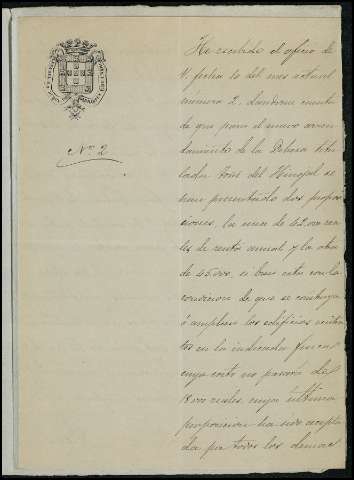 Nº 2
He recibido el oficio de
V. fecha 10 del mes actual
número 2, dandome cuenta
de que para el nuevo arren
damiento de la Dehesa titu
lada Torre del
han presentado dos propo
siciones, la una de 42.000 rea
les de renta anual y la otra
de 45.000, si bien esta con la
condicion de que se construya
ó amplien los edificios existen
tes en la indicada finca
cuyo costo no pasará de
18.000 reales, cuya última
proposicion ha sido acepta
da por todos los demas